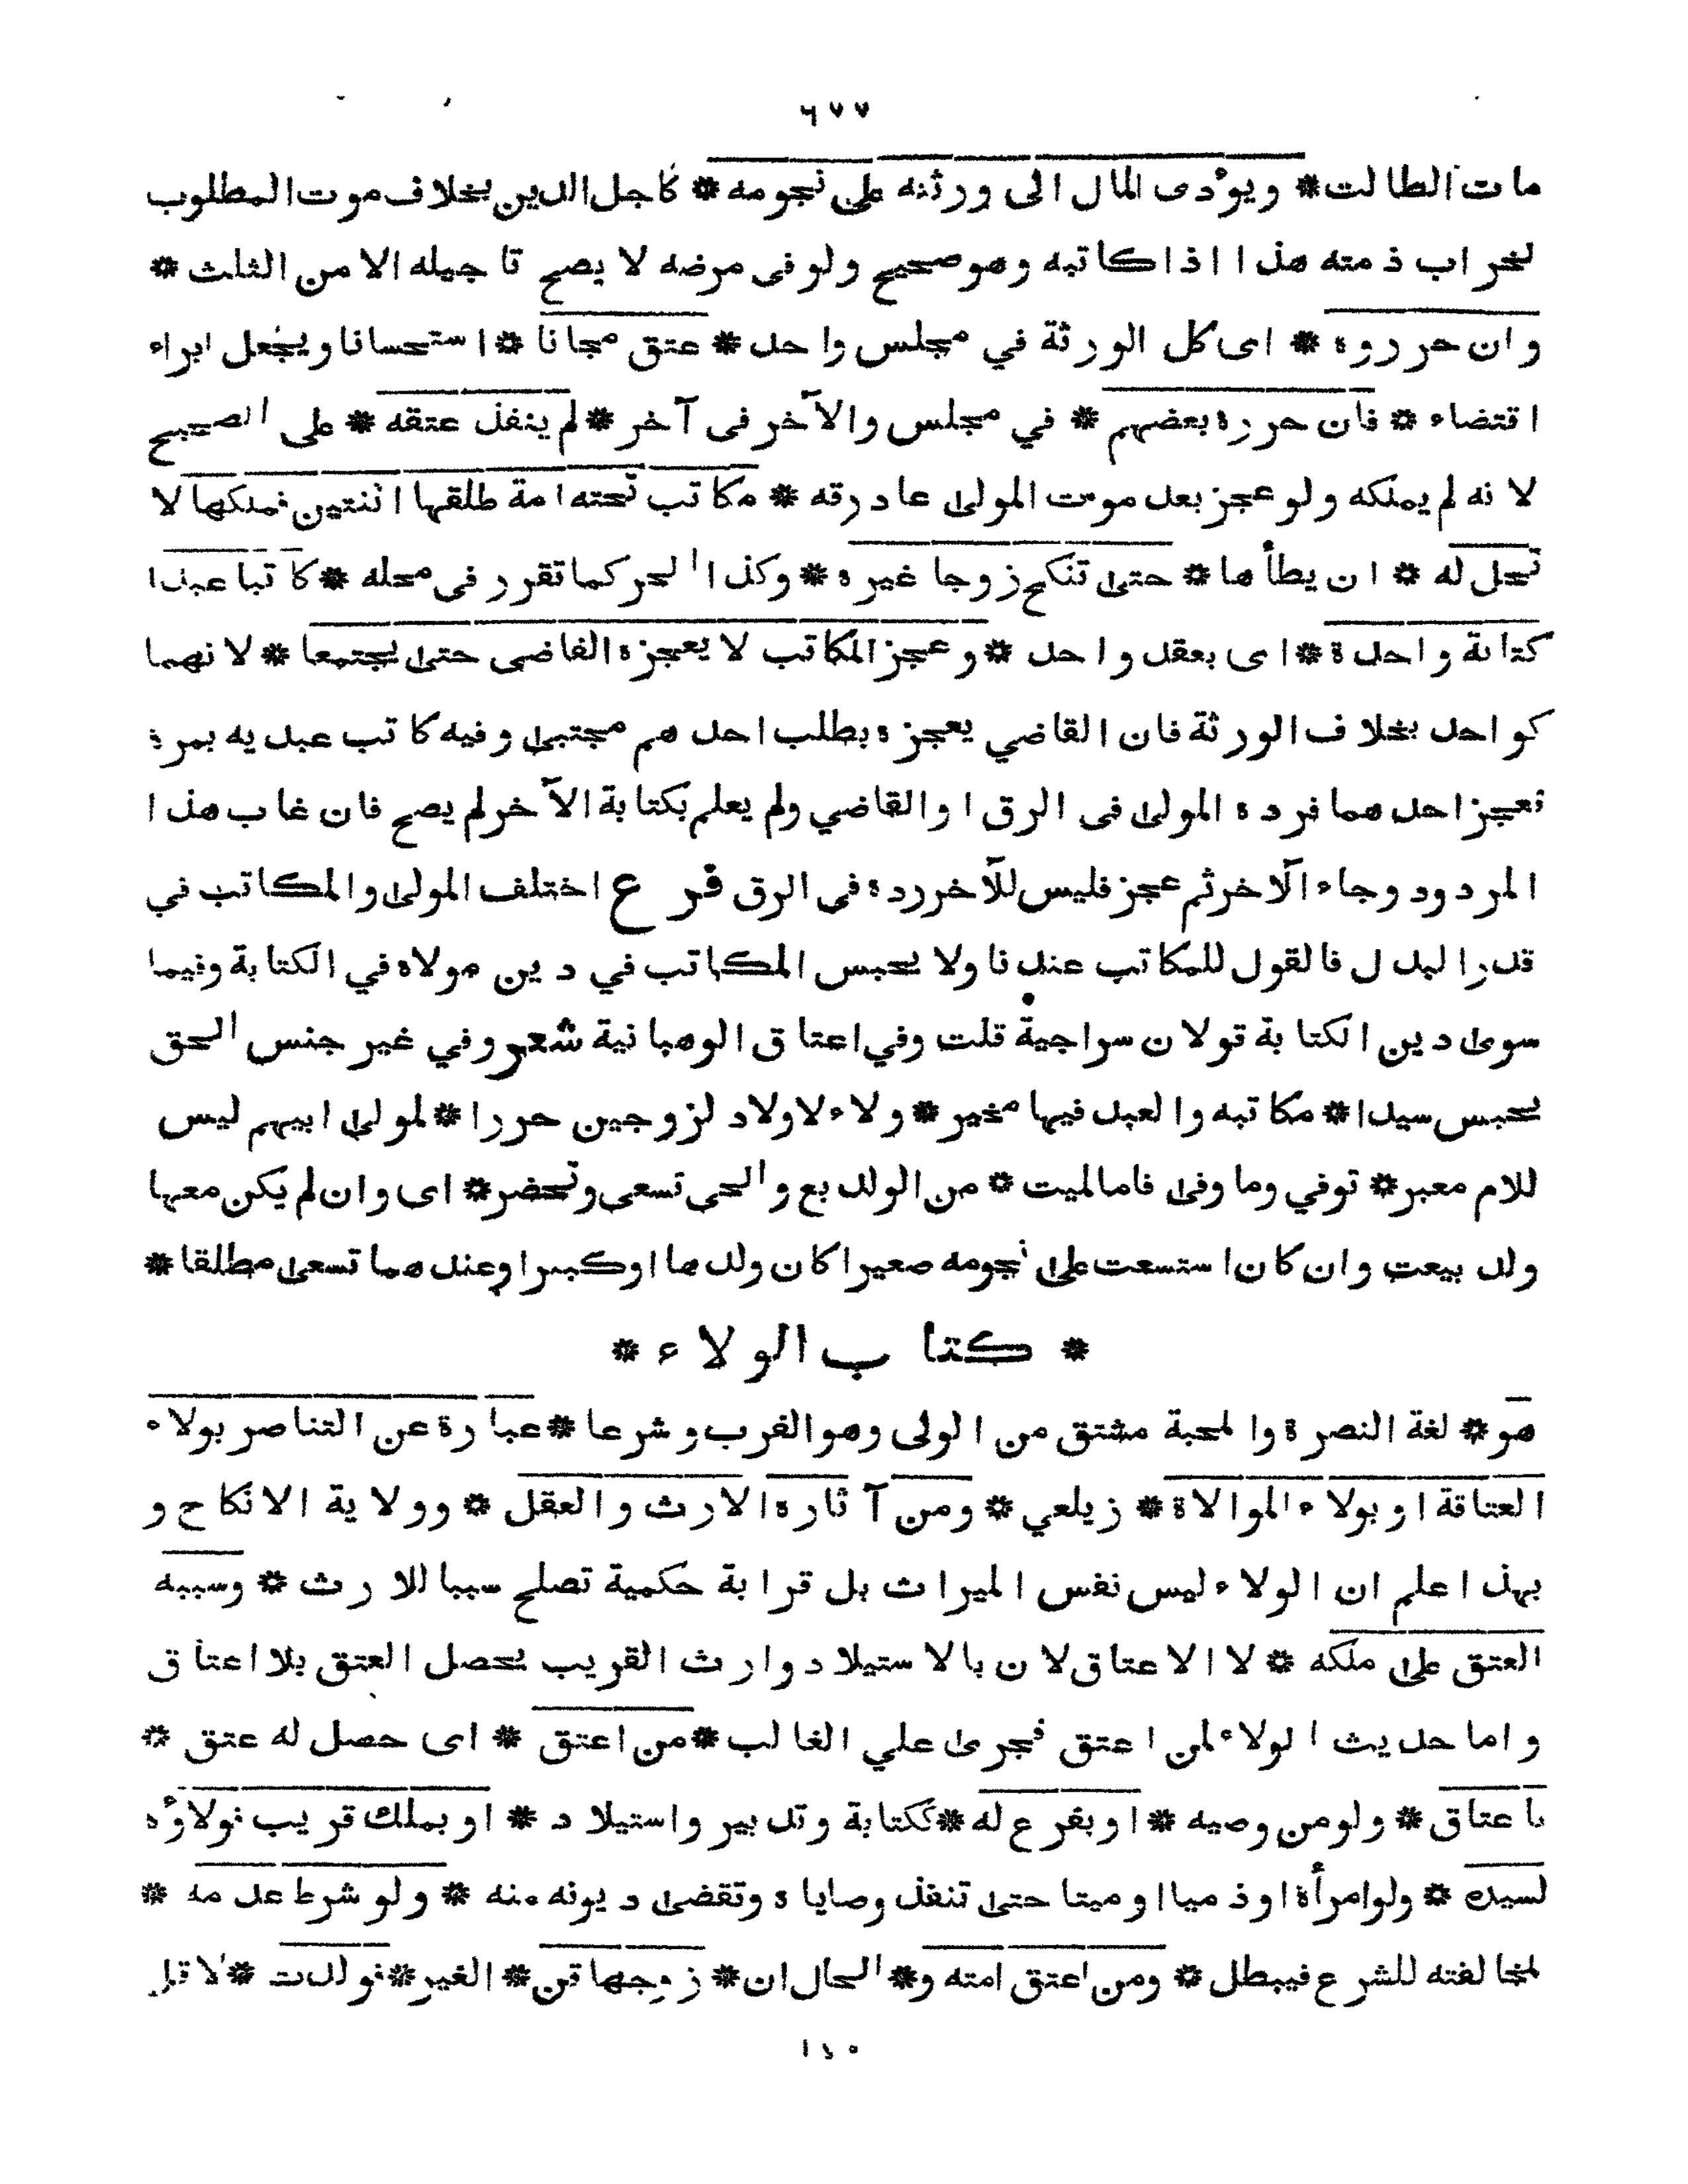 ٦٧٧
مات الطالت * ويؤدى المال الى ورثته على نجومه * كاجل الدين بخلاف موت المطلوب
لخراب ذمته هذا اذا كاتبه وهو صحيح ولو فى مرضه لا يصح تاجيله الا من الثلث *
وان حرروه * اى كل الورثة في مجلس واحد * عتق مجانا * استحسانا ويجعل ابراء
اقتضاء * فان حرره بعضهم * في مجلس والآخر فى آخر * لم ينفذ عتقه * على الصحيح
لانه لم يملكه ولو عجز بعد موت المولى عاد رقه * مكاتب تحته امة طلقها اثنتين فملكها لا
تحل له * ان يطأها * حتى تنكح زوجا غيره * وكذا الحر كما تقرر فى محله * كاتبا عبدا
كتابة واحدة * اى بعقد واحد * و عجز المكاتب لا يعجزه القاضى حتى يجتمعا * لانهما
كواحد بخلاف الورثة فان القاضي يعجزه بطلب احدهم مجتبى وفيه كاتب عبديه بمرة
فعجز احدهما فرده المولى فى الرق او القاضي ولم يعلم بكتابة الآخر لم يصح فان غاب هذا
المردود وجاء الآخر ثم عجز فليس للآخر رده فى الرق فرع اختلف المولى والمكاتب في
قدر البدل فالقول للمكاتب عندنا ولا يحبس المكاتب في دين مولاه في الكتابة وفيما
سوى دين الكتابة قولان سراجية قلت وفي اعتاق الوهبانية شعر وفي غير جنس الحق
يحبس سيدا * مكاتبه والعبد فيها مخير * ولاء لاولاد لزوجين حررا * لمولى ابيهم ليس
للام معبر * توفي وما وفى فاما لميت * من الولد بع والحى تسعى وتحضر * اى وان لم يكن معها
ولد بيعت وان كان استسعت على نجومه صعيرا كان ولدها او كبيرا وعندهما تسعى مطلقا *
* كتاب الولاء *
هو * لغة النصرة والمحبة مشتق من الولى وهو القرب و شرعا * عبارة عن التناصر بولاء
العتاقة او بولاء الموالاة * زيلعي * ومن آثاره الارث والعقل * وولاية الانكاح و
بهذا علم ان الولاء ليس نفس الميراث بل قرابة حكمية تصلح سببا للارث * وسببه
العتق على ملكه * لا الاعتاق لان بالاستيلاد وارث القريب يحصل العتق بلا اعتاق
واما حديث الولاء لمن اعتق فجرى علي الغالب * من اعتق * اى حصل له عتق *
باعتاق * ولو من وصيه * او بفرع له * ككتابة وتدبير واستيلاد * او بملك قريب فولاؤه
لسيده * ولو امرأة او ذميا او ميتا حتى تنفذ وصاياه وتقضى ديونه منه * ولو شرط عدمه *
لمخالفته للشرع فيبطل * ومن اعتق امته و * الحال ان * زوجها قن * الغير * فولدت * لاقل